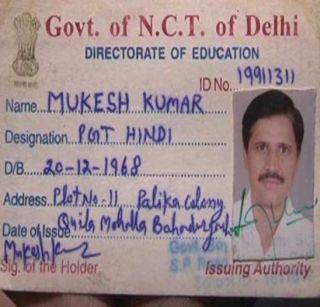 Govt. of N.C.T. of Delhi
DIRECTORATE OF EDUCATION
ID No. 19911311
Name MUKESH KUMAR
Designation PGT HINDI
D/B 20-12-1968
Address Plot No-11 Palika Colony
Date of Issue Quila Mohalla Bahadurgarh
Mukesh Kumar
Sig. of the Holder
Issuing Authority